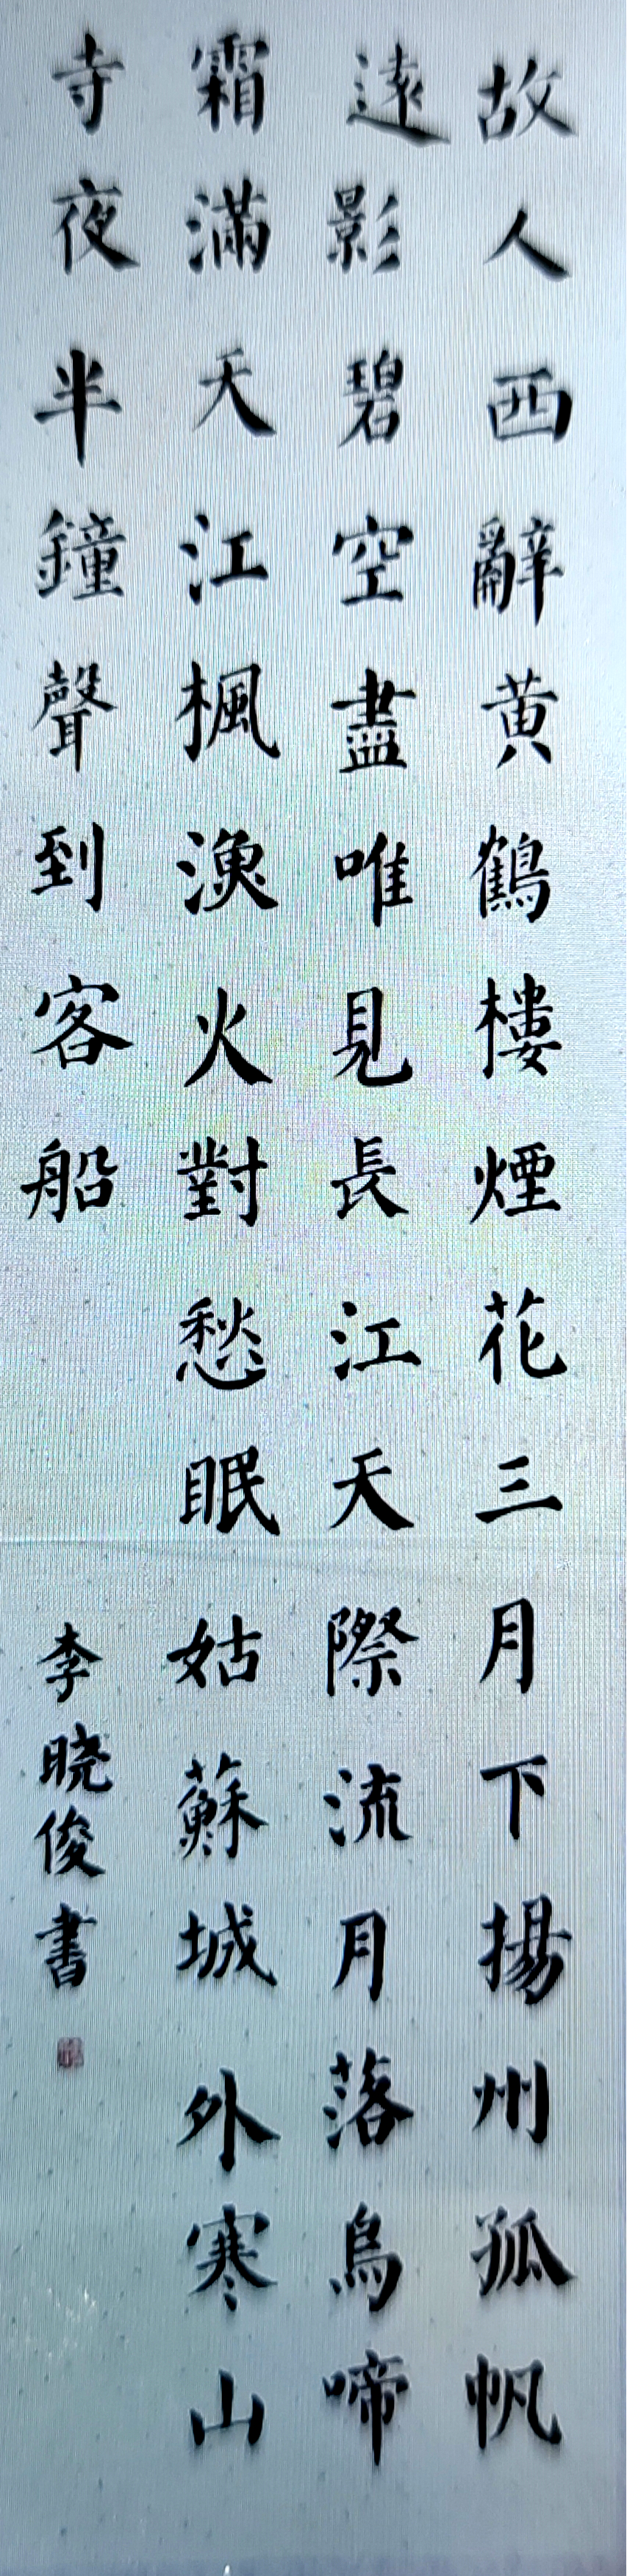 故人西辭黄鶴樓煙花三月下揚州孤帆
遠影碧空盡唯見長江天際流月落烏啼
霜滿天江楓漁火對愁眠姑蘇城外寒山
寺夜半鐘聲到客船
李晓俊書